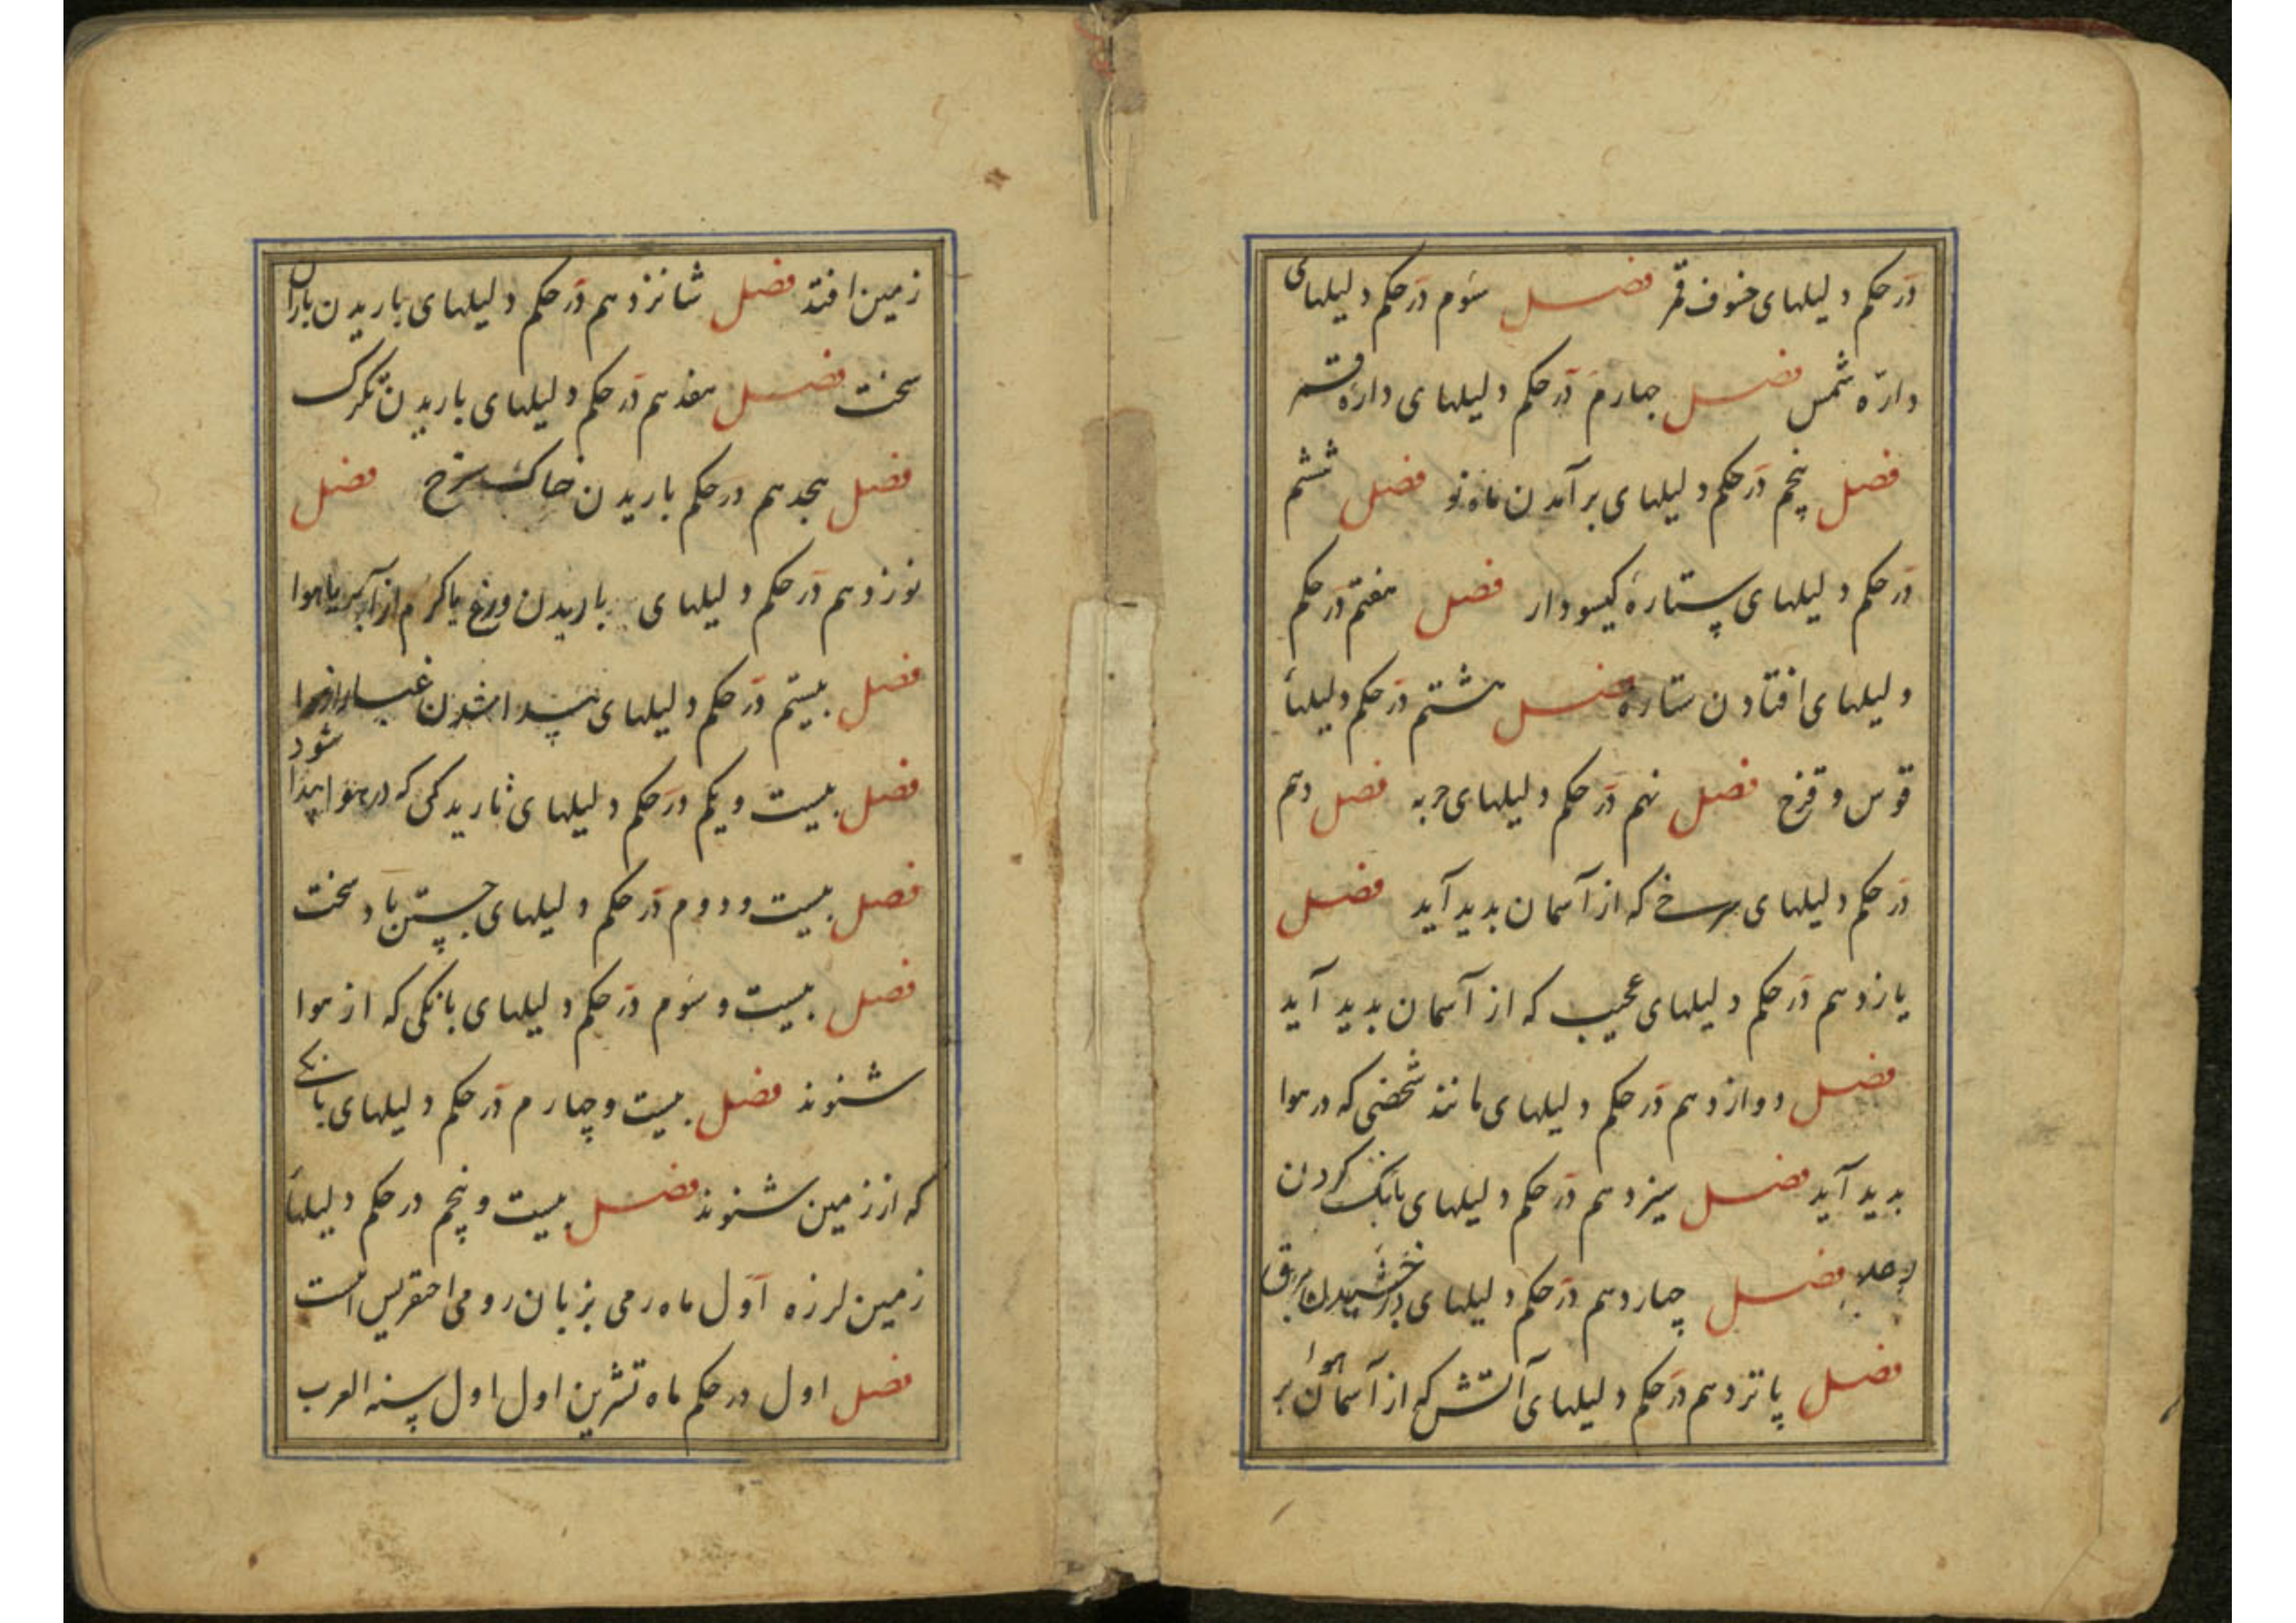 در حکم دلیلهای خسوف قمر فصل سوم در حکم دلیلهای
دارۀ شمس فصل چهارم در حکم دلیلهای دارۀ قمر
فصل پنجم در حکم دلیلهای برآمدن ماه نو فصل ششم
در حکم دلیلهای ستارۀ کیسودار فصل هفتم در حکم
دلیلهای افتادن ستاره فصل هشتم در حکم دلیلهأ
قوس و قزح فصل نهم در حکم دلیلهای حربه فصل دهم
در حکم دلیلهای سرخ که از آسمان بدید آید فصل
یازدهم در حکم دلیلهای عجیب که از آسمان بدید آید
فصل دوازدهم در حکم دلیلهای مانند شخصی که در هوا
بدید آید فصل سیزدهم در حکم دلیلهای بانک کردن
فصل چهاردهم در حکم دلیلهای درخشیدن برق
فصل پانزدهم در حکم دلیلهای آتش که از آسمان هوا بر
زمین افتد فصل شانزدهم در حکم دلیلهای باریدن باران
سخت فصل هفدهم در حکم دلیلهای باریدن تکرک
فصل هجدهم در حکم باریدن خاک سرخ فصل
نوزدهم در حکم دلیلهای باریدن وزغ یا کرم از ابر یا هوا
فصل بیستم در حکم دلیلهای پیدا شدن غبار از هوا
فصل بیست و یکم در حکم دلیلهای تاریدکی که در هوا پیدا شود
فصل بیست و دوم در حکم دلیلهای جستن باد سخت
فصل بیست و سوم در حکم دلیلهای بانکی که از هوا
شنوند فصل بیست و چهارم در حکم دلیلهای بانکی
که از زمین شنوند فصل بیست و پنجم در حکم دلیلهأ
زمین لرزه اول ماه رمی بزبان رومی است
فصل اول در حکم ماه تشرین اول اول سنه العرب